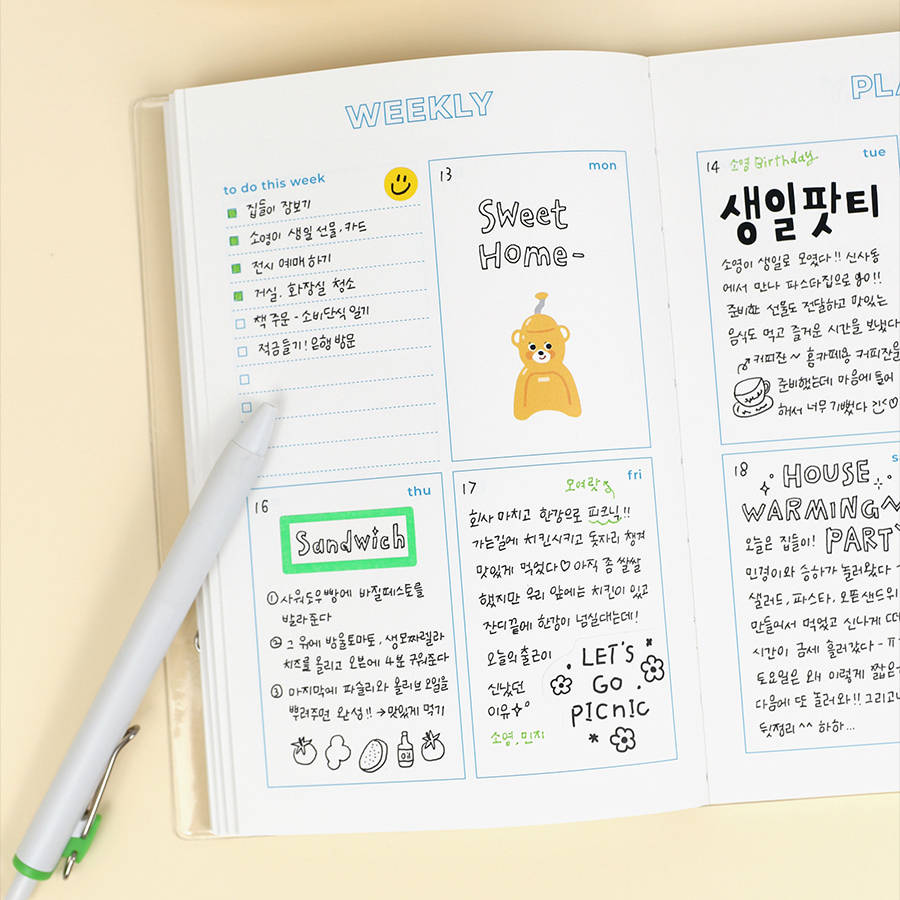 WEEKLY
PLA
to do this week
집들이 장보기
소영이 생일 선물, 카드
전시 예매하기
거실, 화장실 청소
책 주문 - 소비단식 일기
적금들기! 은행 방문
13 mon
SWeet
Home-
14 소영 Birthday tue
생일팟티
소영이 생일로 모였다!! 신사동
에서 만나 파스타집으로 go!!
준비한 선물도 전달하고 맛있는
음식도 먹고 즐거운 시간을 보냈다
커피잔~ 홈카페용 커피잔을
준비했는데 마음에 들어
해서 너무 기뻤다
16 thu
Sandwich
① 사워도우빵에 바질페스토를
발라준다
② 그 위에 방울토마토, 생모짜렐라
치즈를 올리고 오븐에 4분 구워준다
③ 마지막에 파슬리와 올리브 오일을
뿌려주면 완성!! → 맛있게 먹기
oil
17 fri
모여랏
회사 마치고 한강으로 피크닉!!
가는길에 치킨시키고 돗자리 챙겨
맛있게 먹었다♡ 아직 좀 쌀쌀
했지만 우리 앞에는 치킨이 있고
잔디 끝에 한강이 넘실대는데!
오늘의 출근이
신났던
이유
소영, 민지
LET'S
GO
PICNIC
18 s
HOUSE
WARMING~
PARTY
오늘은 집들이!
민경이와 승하가 놀러왔다
샐러드, 파스타, 오픈샌드위
만들어서 먹었고 신나게 떠
시간이 금세 흘러갔다 -
토요일은 왜 이렇게 짧은
다음에 또 놀러와!! 그리고
뒷정리 ^^ 하하...